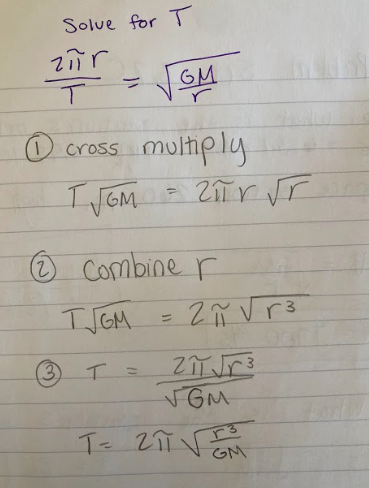 Solve for T
2πr/T = √(GM/r)
① cross multiply
T√GM = 2πr √r
② combine r
T√GM = 2π √r³
③ T = 2π√r³/√GM
T= 2π √(r³/GM)